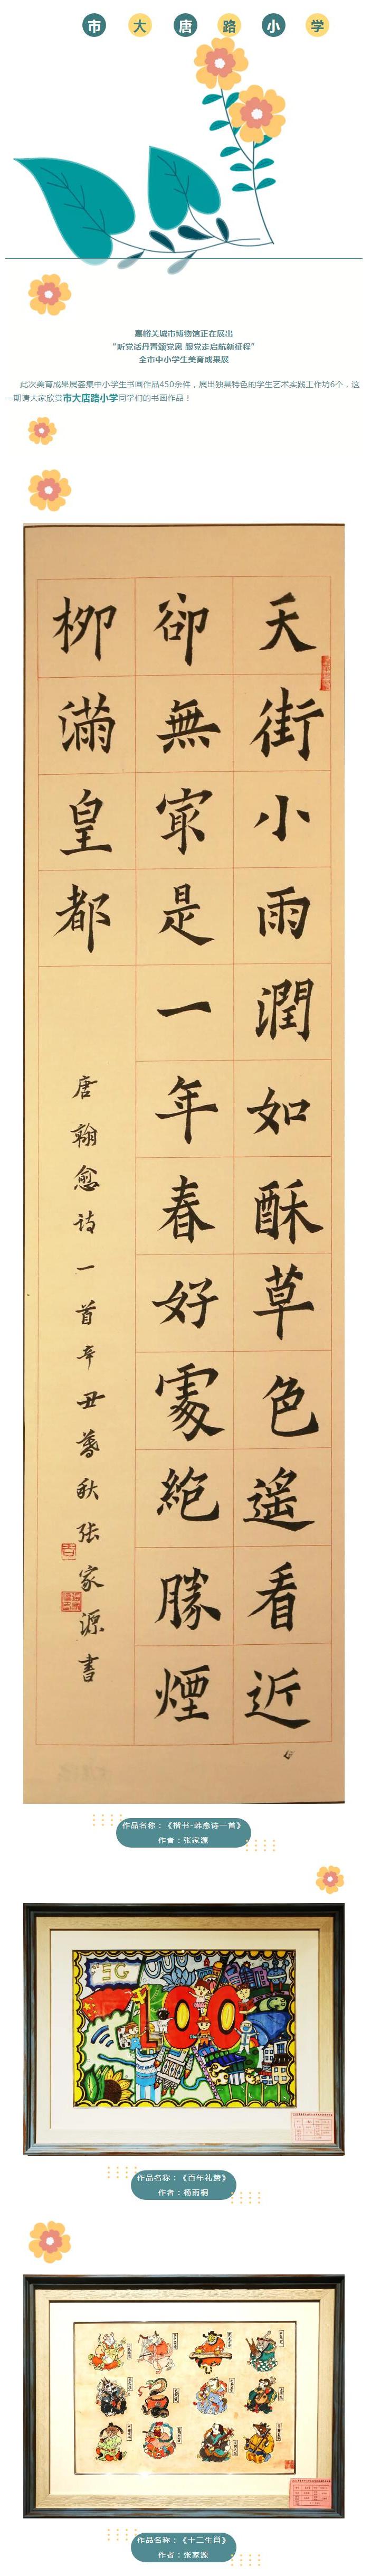 市大唐路小学
嘉峪关城市博物馆正在展出
“听党话丹青颂党恩 跟党走启航新征程”
全市中小学生美育成果展
此次美育成果展荟集中小学生书画作品450余件，展出独具特色的学生艺术实践工作坊6个，这
一期请大家欣赏市大唐路小学同学们的书画作品！
天街小雨潤如酥草色遙看近
卻無宷是一年春好處絕勝煙
柳滿皇都
唐韓愈诗一首辛丑暮秋张家源書
作品名称：《楷书·韩愈诗一首》
作者：张家源
5G
100
作品名称：《百年礼赞》
作者：杨雨桐
作品名称：《十二生肖》
作者：张家源